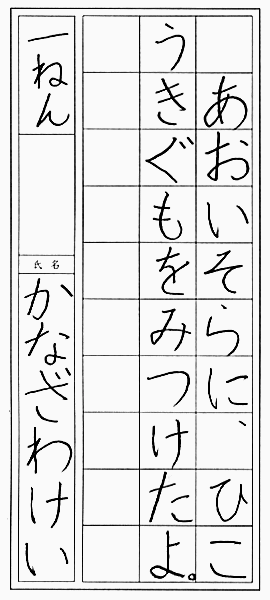 あおいそらに、ひこ
うきぐもをみつけたよ。
一ねん
氏名
かなざわけい